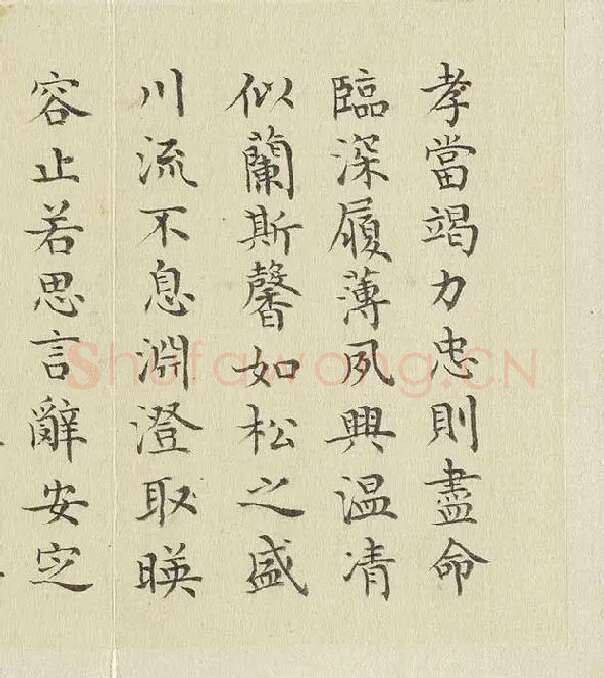 孝當竭力忠則盡命
臨深履薄夙興温凊
似蘭斯馨如松之盛
川流不息淵澄取暎
容止若思言辭安定
Shufawang.CN